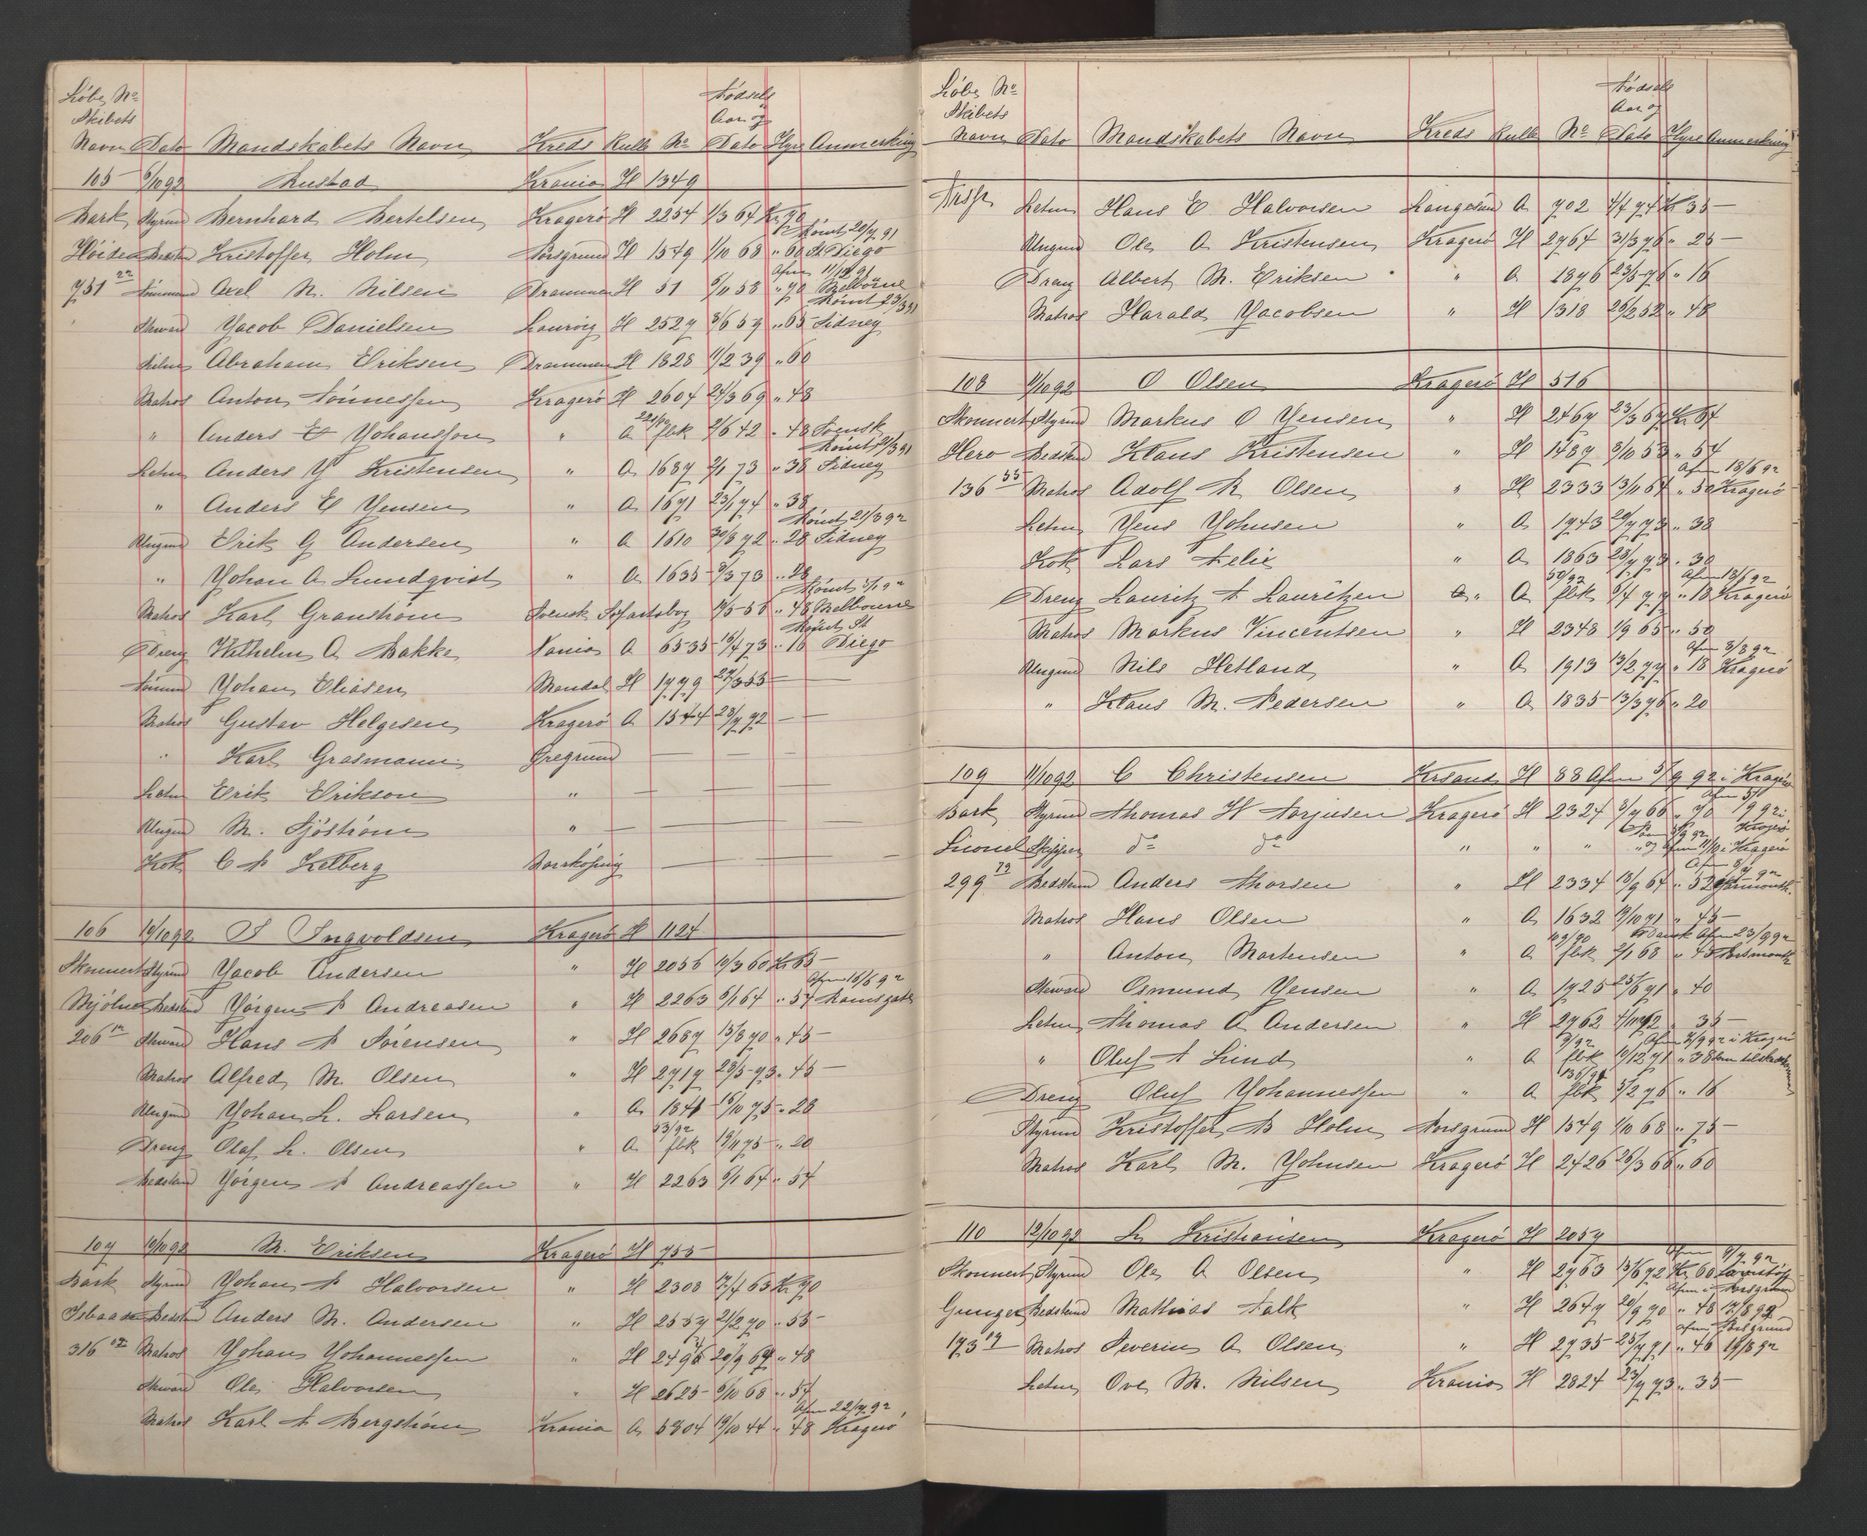 Løbe No
Skibets
Navn Dato Mandskabets Navn Kreds Rulle No Fødsels Aar og Dato Hyre Anmerkning
105 5/10 92 Kronia H 1349
Bark Styrmd Bernhard Bertelsen Kragerø H 2254 1/3 64 Kr 70
Kristoffer Holm Porsgrund H 1549 1/10 68 " 60 Rømt 20/7 91 St Diego
751 22 Tømmermd Axel N. Nilsen Drammen H 51 5/11 58 " 70 Afm 11/12 91 Melborne
Steward Jacob Danielsen Laurvig H 2527 3/6 59 " 65 Rømt 23/3 91 Sidney
Seilm Abraham Eriksen Drammen H 1828 11/2 39 " 60
Matros Anton Tønnessen Kragerø H 2604 24/3 69 " 48
" Anders E Johansson " A flk 2/6 42 " 48 Svensk
Letm Anders J Kristensen " A 1687 2/1 73 " 38 Rømt 21/3 91 Sidney
" Anders E Jensen " A 1671 23/1 74 " 38
Ungmd Erik G Andersen " A 1610 30/8 72 " 28 Rømt 21/3 92 Sidney
" Johan A Lundqvist " A 1635 9/3 73 " 28
Matros Karl Granstrøm Svensk Søfartsbog 19/5 56 " 48 Rømt Melbourne
Dreng Vilhelm A Bakke Kania A 6535 15/4 73 " 16 Rømt St Diego
Tømmd Johan Eliasen Mandal H 1779 27/3 55 —
Matros Gustav Helgesen Kragerø A 1544 23/7 72 — —
" Karl Grasmann Øregrund — — — —
Letm Erik Erikson " — — — —
Ungmd M. Sjöström " — — — —
Kok C A Kelberg Norrköping — — — —
106 10/10 92 I Ingvoldsen Kragerø H 1124
Skonnert Styrmd Jacob Andersen " H 2056 10/3 60 Kr 65
Mjølner Bedstmd Jørgen A Andreasen " H 2263 6/1 64 " 54 Afm 16/6 92 Ramsgate
206 12 Steward Hans A Sørensen " H 2687 15/8 70 " 45
Matros Alfred M Olsen " H 2717 23/5 73 " 45
Ungmd Johan L. Larsen " A 1841 15/10 75 " 28
Dreng Olaf L. Olsen " A 53/92 flk 19/1 75 " 20
Bedstmd Jørgen A Andreassen " H 2263 6/1 64 " 54
107 10/10 92 M. Eriksen Kragerø H 755
Bark Styrmd Johan A Halvorsen " H 2308 17/4 63 Kr 70
Bedstmd Anders M. Andersen " H 2557 21/2 70 " 55
316 02 Matros Johan Johannessen " H 2496 20/9 67 " 48
Steward Ole Halvorsen " H 2625 6/10 68 " 54
Matros Karl A Bergstrøm Kronia A 5804 19/10 44 " 48 Afm 22/7 92 Kragerø
Løbe No
Skibets
Navn Dato Mandskabets Navn Kreds Rulle No Fødsels Aar og Dato Hyre Anmerkning
Letm Hans E Halvorsen Langesund A 702 4/4 74 Kr 35
Ungmd Ole A Kristensen Kragerø H 2764 31/3 76 " 25
Dreng Albert M. Eriksen " A 1876 23/5 76 " 16
Matros Harald Jacobsen " H 1318 20/2 52 " 48
108 O Olsen Kragerø H 516
Skonnert Styrmd Markus O Jensen " H 2467 23/3 67 Kr 64
Hero Bedstmd Klaus Kristensen " H 1487 9/10 53 " 54
136 55 Matros Adolf A Olsen " H 2333 13/11 64 " 50 Afm 18/6 92 Kragerø
Letm Jens Johnsen " A 1943 29/7 73 " 38
Kok Lars Felix " A 1863 28/7 73 " 30
Dreng Lauritz A Lauritzen " A 50/92 flk 5/4 77 " 18 Afm 13/6 92 Kragerø
Matros Markus Vincentsen " H 2348 1/9 65 " 50
Ungmd Nils Hetland " A 1913 13/2 77 " 18 Afm 3/8 92 Kragerø
" Klaus M. Pedersen " A 1835 13/3 76 " 20
109 11/10 92 C Christensen Krsand H 88 Afm 5/9 92 i Kragerø
Bark Styrmd Thomas H Torjusen Kragerø H 2324 3/7 66 " 70 Afm 5/9 92 i Kragerø
Lionel Skipper do do " " " i Kragerø
299 79 Bedstmd Anders Thorsen " H 2334 18/9 64 " 52
Matros Hans Olsen " A 1632 9/10 71 " 45
" Anton Mortensen " A flk 2/1 68 " 45 Dansk Afm 23/9 92
Steward Osmund Jensen " A 1725 25/6 71 " 40
Letm Thomas A Andersen " H 2762 " 35
" Oluf A Lund " A flk 19/12 71 " 38 Afm 7/9 92 i Kragerø
Dreng Oluf Johannessen " A flk 5/2 76 " 16
Styrmd Kristoffer B Holm Porsgrund H 1549 1/10 68 " 75
Matros Karl M. Johnsen Kragerø H 2426 26/3 66 " 60
110 12/10 92 L Kristiansen Kragerø H 2057
Skonnert Styrmd Ole A Olsen " H 2763 15/6 72 Kr 60
Gunger Bedstmd Mathias Falk " H 2647 20/9 70 " 48 Afm i Porsgrund 17/8 92
173 09 Matros Severin A Olsen " H 2735 25/7 71 " 46 Afm Porsgrund 19/8 92
Letm Ove M. Nilsen Kronia H 2824 23/7 73 " 35